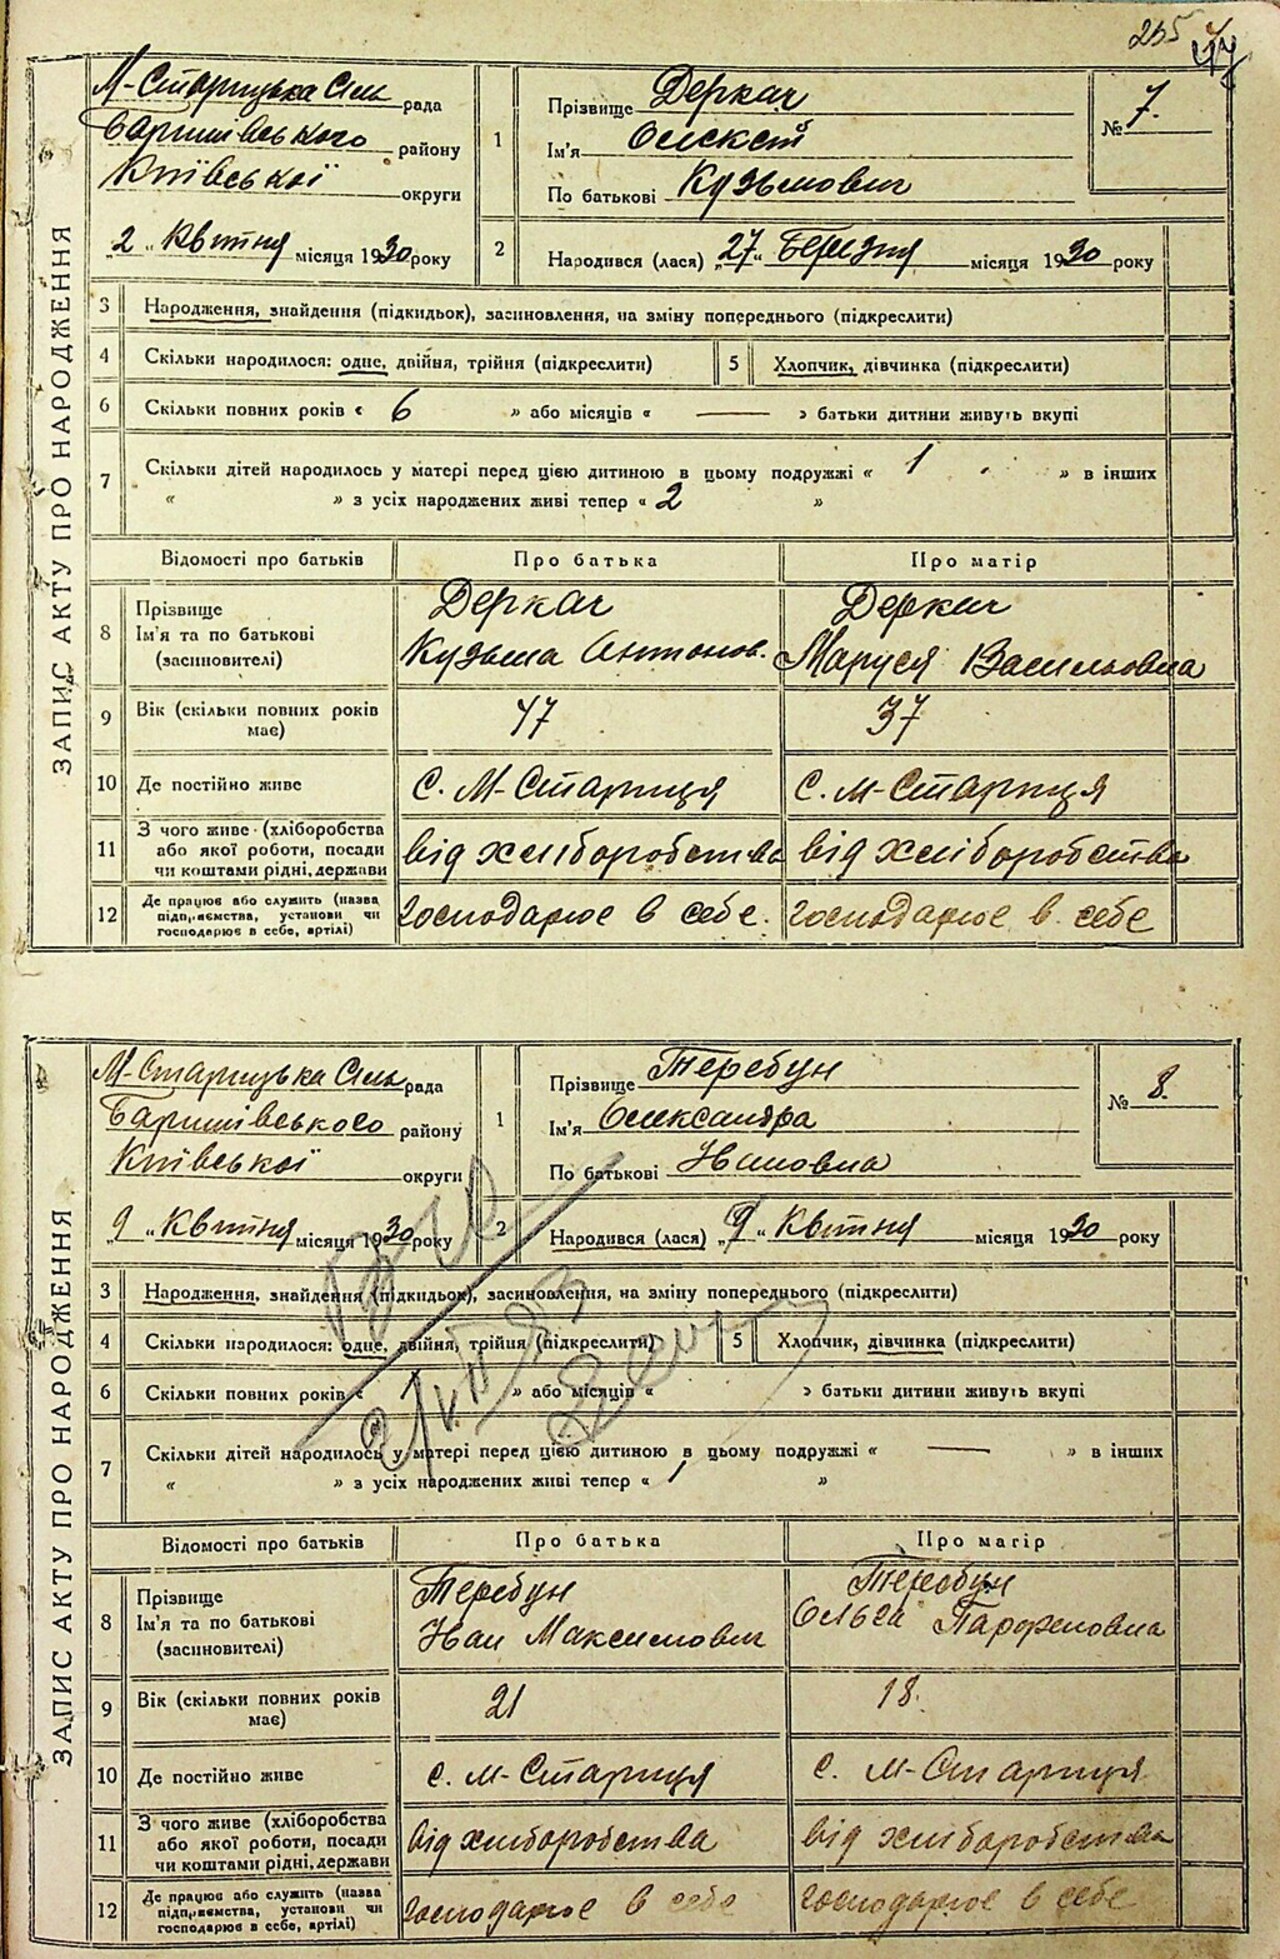 235
ЗАПИС АКТУ ПРО НАРОДЖЕННЯ
М-Старицька Сіль рада
Баришівського району
Київської округи
„2" Квітня місяця 1930 року
1
Прізвище Деркач
Ім'я Олексій
По батькові Кузьмович
№ 7.
2
Народився (лася) „27" Березня місяця 1930 року
3 Народження, знайдення (підкидьок), засиновлення, на зміну попереднього (підкреслити)
4 Скільки народилося: одне, двійня, трійня (підкреслити) 5 Хлопчик, дівчинка (підкреслити)
6 Скільки повних років « 6 » або місяців « — » батьки дитини живуть вкупі
7 Скільки дітей народилось у матері перед цією дитиною в цьому подружжі « 1 » в інших
« » з усіх народжених живі тепер « 2 »
Відомості про батьків Про батька Про матір
8 Прізвище Ім'я та по батькові (засиновителі)
Деркач Деркач
Кузьма Антонов. Маруся Васильовна
9 Вік (скільки повних років має) 47 37
10 Де постійно живе с. М-Стариця с. М-Стариця
11 З чого живе (хліборобства або якої роботи, посади чи коштами рідні, держави від хліборобства від хліборобства
12 Де працює або служить (назва підприємства, установи чи господарює в себе, артілі) господарює в себе. господарює в себе
ЗАПИС АКТУ ПРО НАРОДЖЕННЯ
М-Старицька Сіль рада
Баришівського району
Київської округи
„9" Квітня місяця 1930 року
1
Прізвище Теребун
Ім'я Олександра
По батькові Івановна
№ 8.
2
Народився (лася) „9" Квітня місяця 1930 року
3 Народження, знайдення (підкидьок), засиновлення, на зміну попереднього (підкреслити)
4 Скільки народилося: одне, двійня, трійня (підкреслити) 5 Хлопчик, дівчинка (підкреслити)
6 Скільки повних років « 1 » або місяців « » батьки дитини живуть вкупі
7 Скільки дітей народилось у матері перед цією дитиною в цьому подружжі « — » в інших
« » з усіх народжених живі тепер « 1 »
Відомості про батьків Про батька Про матір
8 Прізвище Ім'я та по батькові (засиновителі)
Теребун Теребун
Іван Максимович Ольга Парфеновна
9 Вік (скільки повних років має) 21 18.
10 Де постійно живе с. М-Стариця с. М-Стариця
11 З чого живе (хліборобства або якої роботи, посади чи коштами рідні, держави від хліборобства від хліборобства
12 Де працює або служить (назва підприємства, установи чи господарює в себе, артілі) господарює в себе господарює в себе